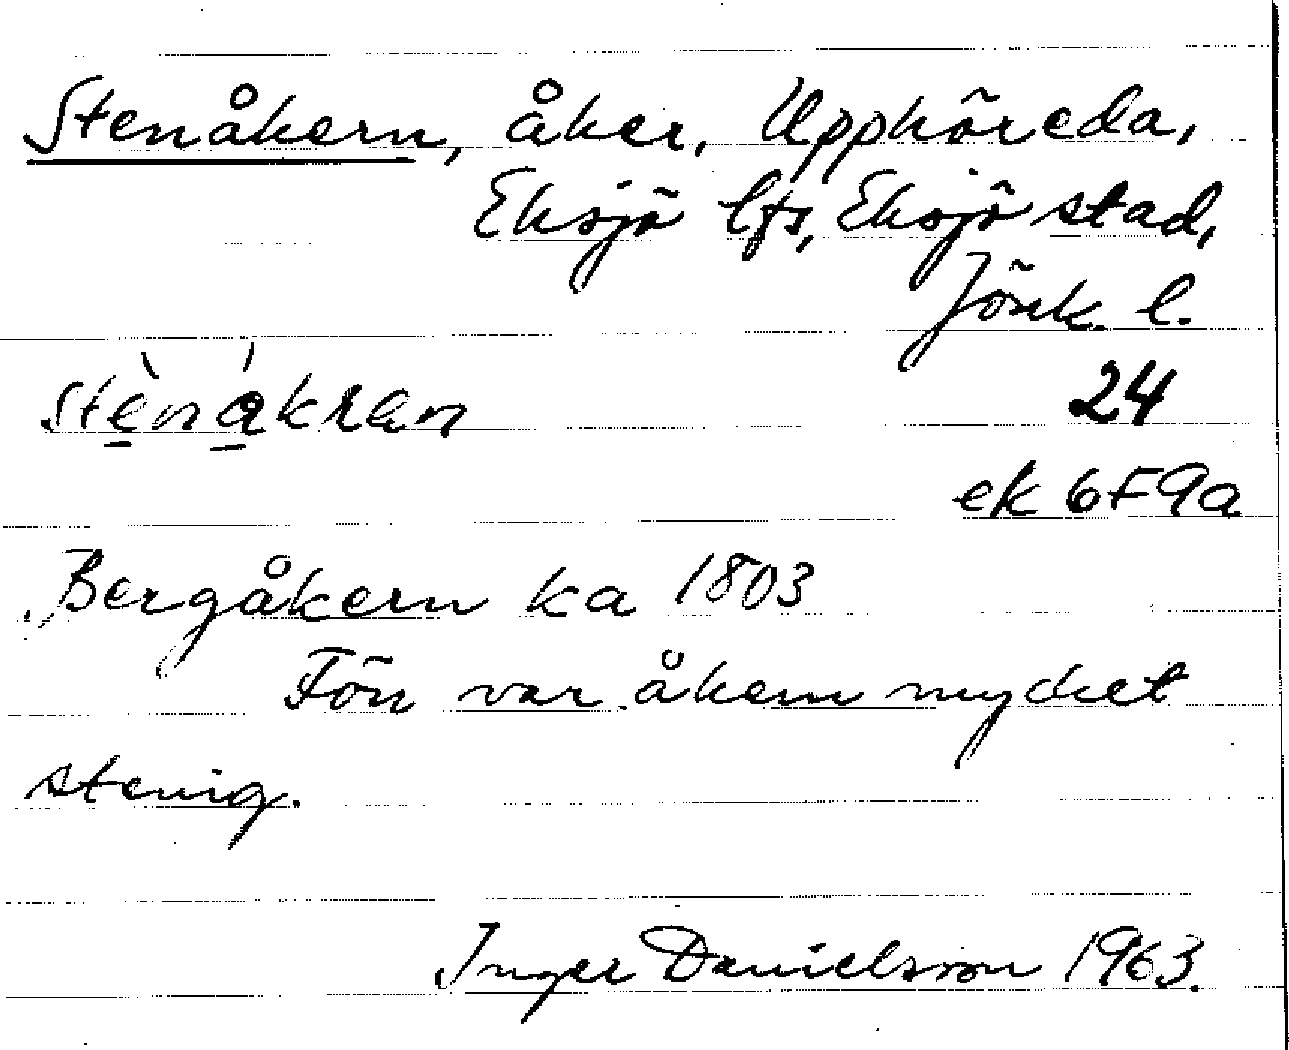 Stenåkern, åker, Uppköreda,
Eksjö lfs, Eksjö stad,
Jönk. l.
stènákran
24
ek 6F9a
Bergåkern ka 1803
Förr var åkern mycket
stenig.
Inger Danielsson 1963.